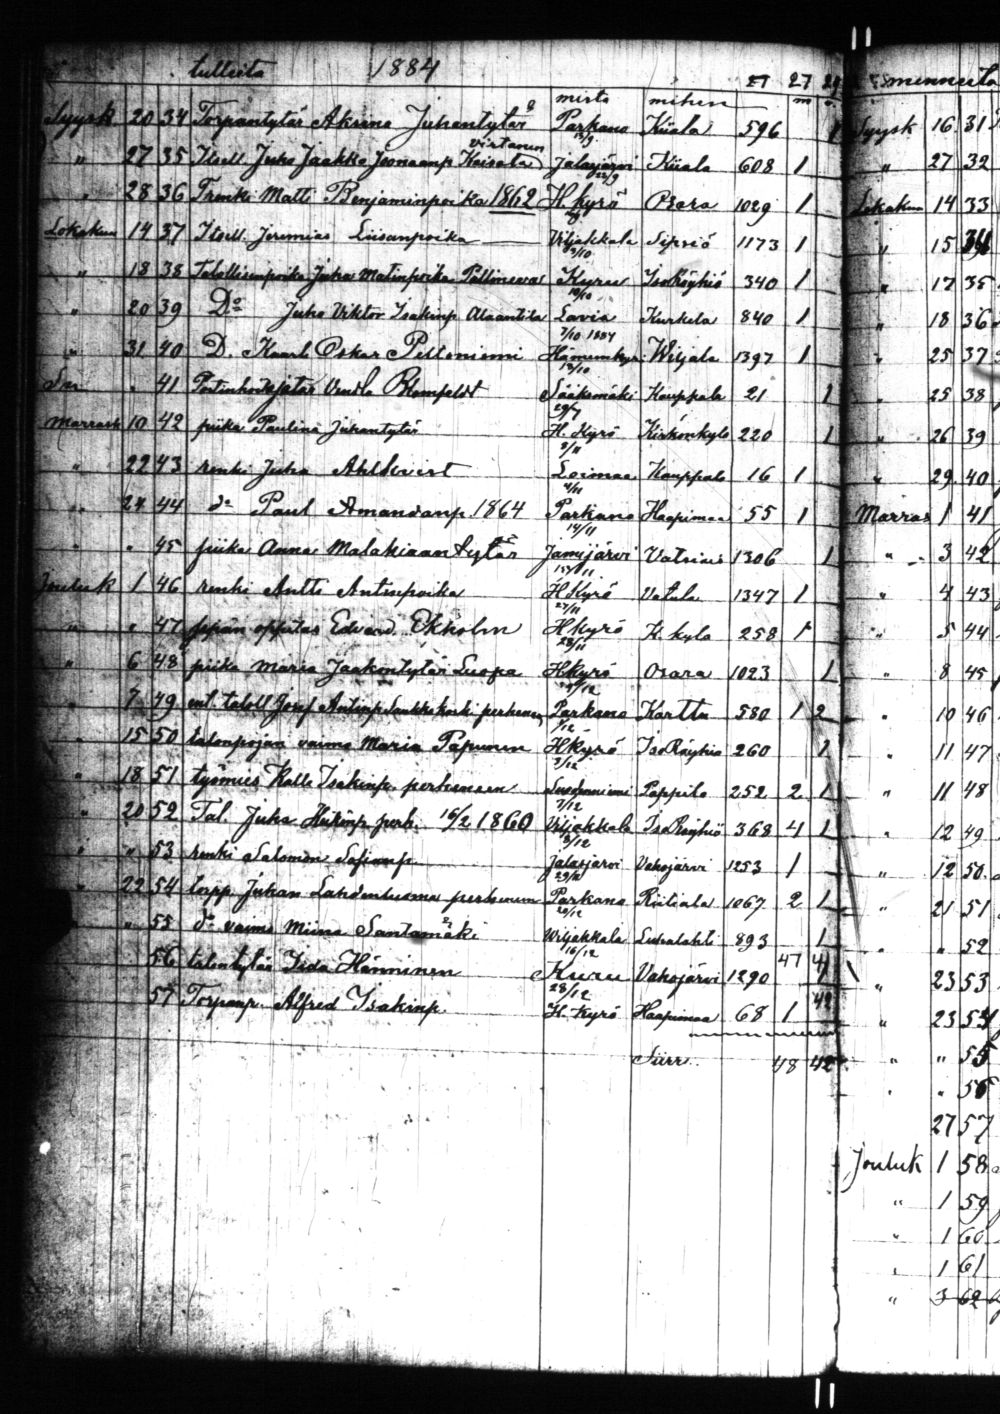 tulleita 1884
mistä mihin 27 27
m
Syysk. 20 34 Torpantytär Aksina Juhantytär Parkano Kiiala 596 1
Virtanen
" 27 35 Itsell. Juho Jaakko Joonaanp Jalasjärvi 22/9 Kiiala 608 1
" 28 36 Trenki Matti Benjaminpoika 1862 H. kyrö Osara 1029 1
Lokakuu 14 37 Itsell. Jeremias Liisanpoika Viljakkala 3/10 Sipsiö 1173 1
" 18 38 Talollisenpoika Juha Matinpoika Kuru IsoRöyhiö 340 1
" 20 39 Do Juho Viktor Isakinp Alaantila Lavia Kurkela 840 1
7/10 1884
" 31 40 D. Kaarl Oskar Peltoniemi Hämeenkyrö 13/10 Wiljala 1397 1
41 Vendla Blomfeldt Sääksmäki 29/7 Kauppala 21 1
Marrask 10 42 piika Paulina Juhantytär H. Kyrö Kirkonkylä 220 1
" 22 43 renki Juha Ahlkvist Loimaa Kauppala 16 1
" 24 44 do Paul Amandanp. 1864 Parkano 14/11 Haapimaa 55 1
" " 45 piika Anna Malakiaantytär Jämijärvi Vatsiais 1306 1
Jouluk 1 46 renki Antti Antinpoika H Kyrö 27/11 Vatula 1347 1
" " 47 sepän oppilas Edvard Ekholm H kyrö 28/11 K. kylä 258 1
" 6 48 piika Maria Jaakontytär Luopa H.kyrö Osara 1023 1
" 7 49 ent. taloll Josef Antinp perheneen Parkano Karttu 580 1 2
" 15 50 talonpojan vaimo Maria Papunen H kyrö IsoRöyhiö 260 1
" 18 51 työmies Kalle Isakinp. perheneen 7/12 Pappila 252 2 1
" 20 52 Tal. Juha perh. 15/2 1860 Viljakkala IsoRöyhiö 368 4 1
" " 53 renki Salomon Jalasjärvi Vahojärvi 1253 1
" 22 54 torpp. Juhan Lahdenluoma perheneen Parkano 20/12 Riitiala 1067 2 1
" 55 do vaimo Miina Santamäki Wiljakkala 16/12 Luhalahti 893 1
47 41
56 talontytär Iida Hänninen Kuru Vahojärvi 1290 1
28/12 42
57 Torpanp. Alfred Isakinp. H. Kyrö Haapimaa 68 1
Siirr. 48 42
menneitä
Syysk 16 31
" 27 32
Lokakuu 14 33
" 15 34
" 17 35
" 18 36
" 25 37
" 25 38
" 26 39
" 29 40
Marras 1 41
" 3 42
" 4 43
" 5 44
" 8 45
" 10 46
" 11 47
" 11 48
" 12 49
" 12 50
" 21 51
" " 52
" 23 53
" 23 54
" " 55
" " 56
27 57
Jouluk 1 58
" 1 59
" 1 60
" 1 61
" 3 62